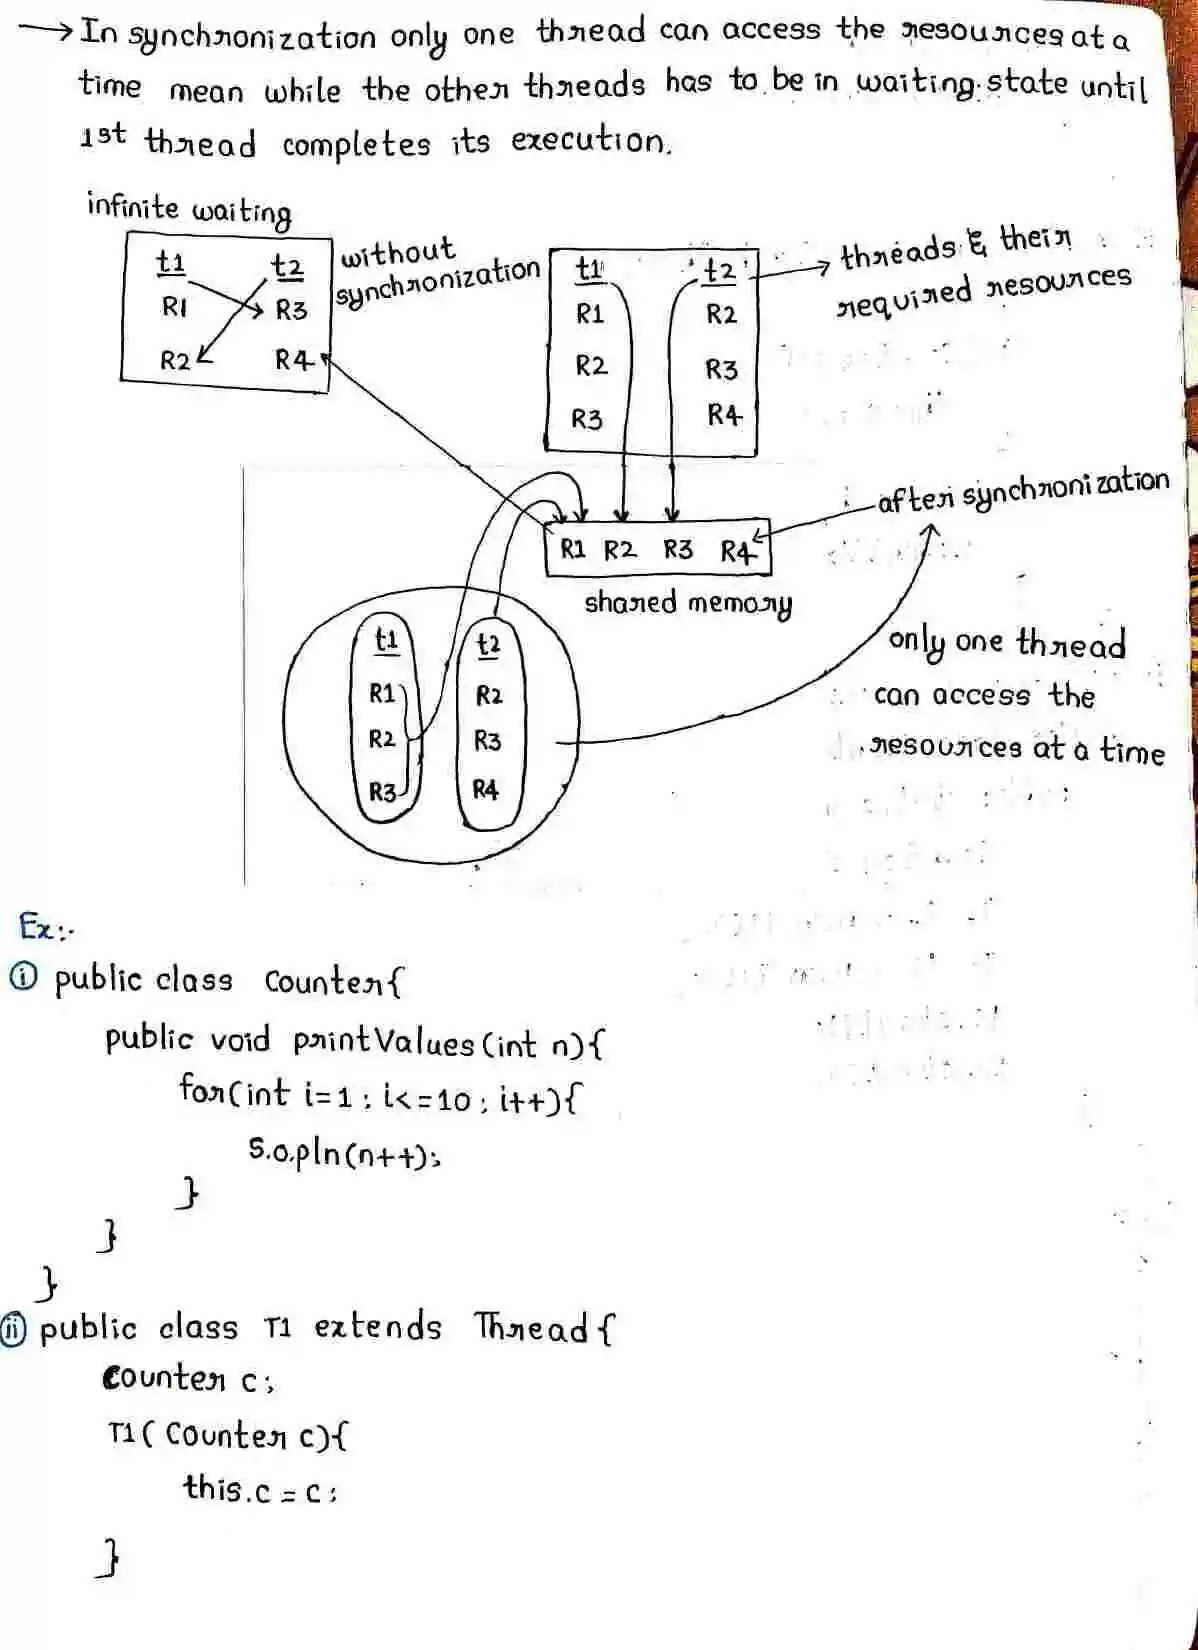 → In synchronization only one thread can access the resources at a
time mean while the other threads has to be in waiting state until
1st thread completes its execution.
infinite waiting
t1 t2
R1 R3
R2 R4
without
synchronization
t1 t2
R1 R2
R2 R3
R3 R4
threads & their
required resources
after synchronization
R1 R2 R3 R4
shared memory
t1 t2
R1 R2
R2 R3
R3 R4
only one thread
can access the
resources at a time
Ex:-
(i) public class Counter{
public void printValues(int n){
for(int i=1; i<=10; i++){
S.o.pln(n++);
}
}
}
(ii) public class T1 extends Thread{
Counter c;
T1( Counter c){
this.c = c;
}